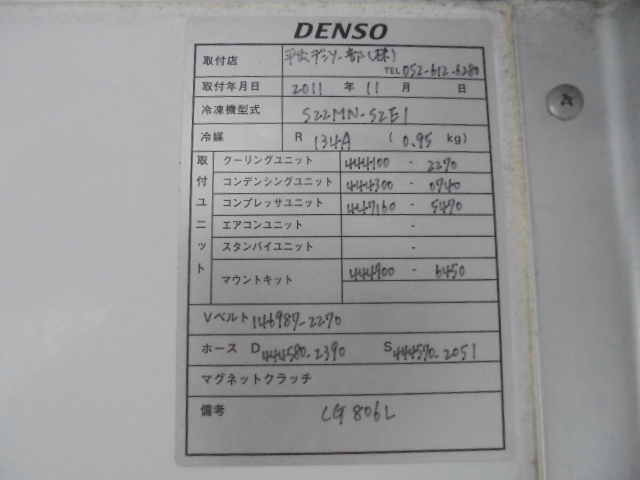 DENSO
取付店 (株)
TEL 052-612-6280
取付年月日 2011 年 11 月 日
冷凍機型式 S22MN-S2E1
冷媒 R 134A ( 0.95 kg)
取付ユニット
クーリングユニット 444100 - 2270
コンデンシングユニット 444300 - 0740
コンプレッサユニット 447160 - 5470
エアコンユニット -
スタンバイユニット -
マウントキット 444900 - 6450
Vベルト 146987-2270
ホース D 444580-2390 S 444570-2051
マグネットクラッチ
備考 LG806L